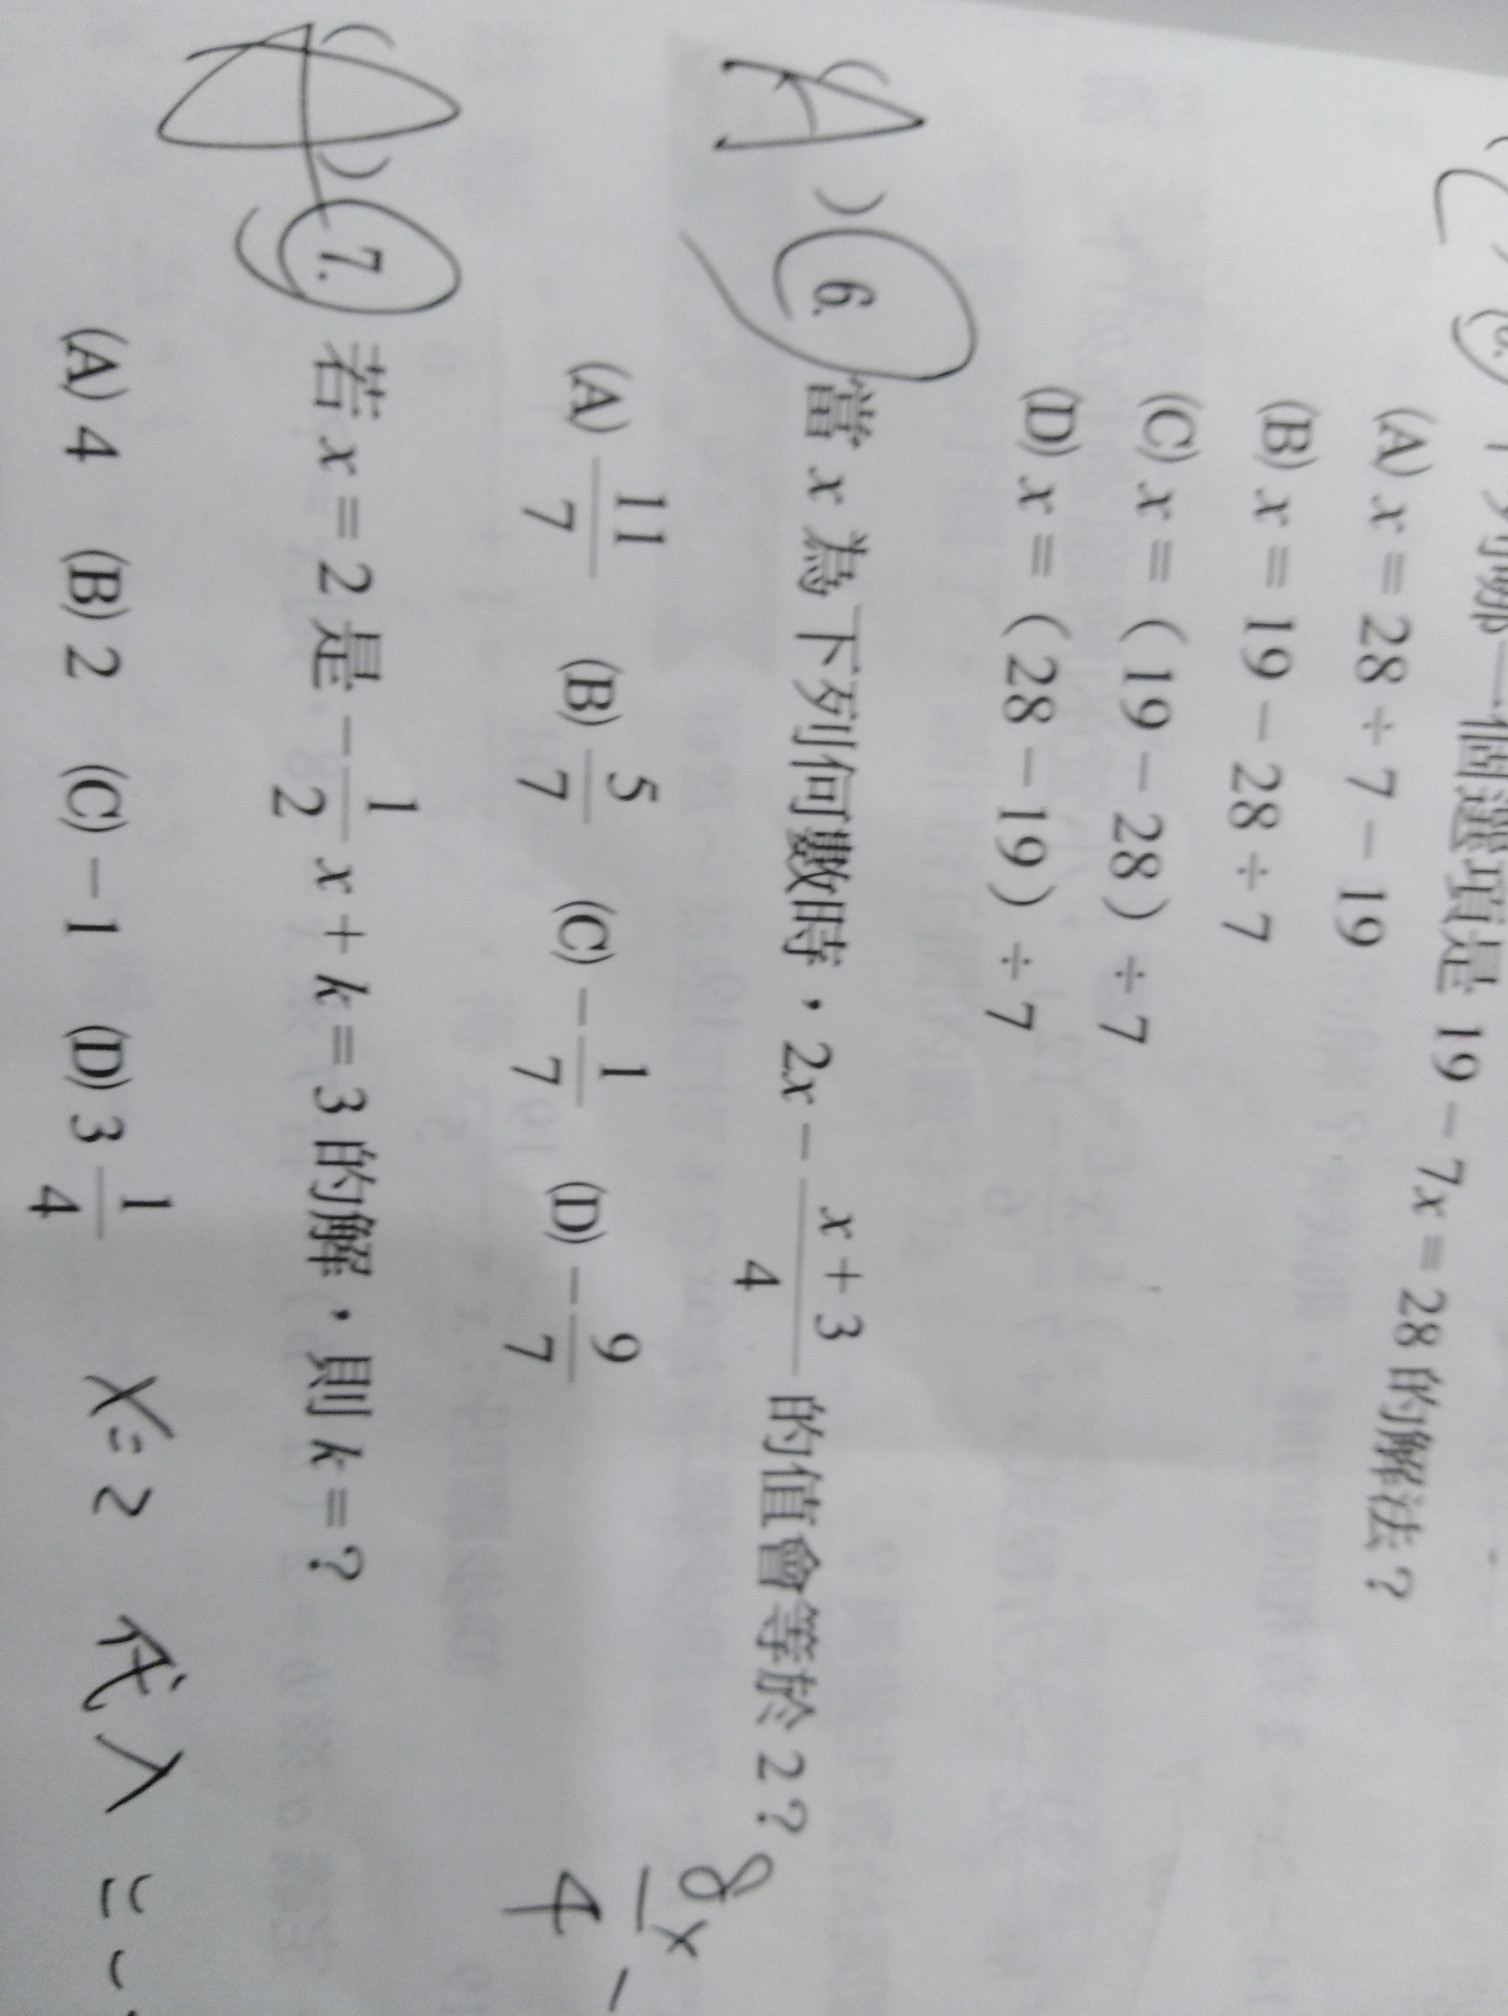 列哪一個選項是 19－7x＝28 的解法？
(A) x＝28÷7－19
(B) x＝19－28÷7
(C) x＝（19－28）÷7
(D) x＝（28－19）÷7
(A) 6. 當 x 為下列何數時，2x－\frac{x+3}{4} 的值會等於 2？
(A) \frac{11}{7} (B) \frac{5}{7} (C) －\frac{1}{7} (D) －\frac{9}{7}
\frac{8x}{4} －
( ) 7. 若 x＝2 是 －\frac{1}{2}x＋k＝3 的解，則 k＝？
(A) 4 (B) 2 (C) －1 (D) 3\frac{1}{4}
x=2 代入 =